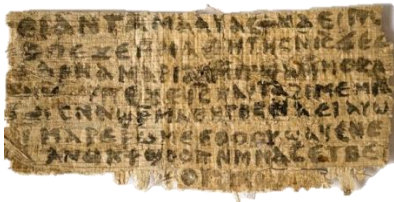 ⲉⲓ ⲁⲛ ⲧⲁⲙⲁⲁⲩ ⲁⲥϯ ⲛⲁⲉⲓ ⲡⲱ
ⲡⲉϫⲉ ⲙⲙⲁⲑⲏⲧⲏⲥ ⲛⲓⲥ ϫⲉ
ⲁⲣⲛⲁ ⲙⲁⲣⲓⲁⲙ ⲙⲡϣⲁ ⲙⲙⲟⲥ ⲁⲛ
ⲡⲉϫⲉ ⲓⲥ ⲛⲁⲩ ⲧⲁϩⲓⲙⲉ ⲙⲛ
ⲥⲛⲁϣⲣⲙⲁⲑⲏⲧⲏⲥ ⲛⲁⲉⲓ ⲁⲩⲱ
ⲙⲁⲣⲉⲣⲱⲙⲉ ⲉⲑⲟⲟⲩ ϣⲁϥⲉ ⲛⲉ
ⲁⲛⲟⲕ ϯϣⲟⲟⲡ ⲛⲙⲙⲁⲥ ⲉⲧⲃⲉ